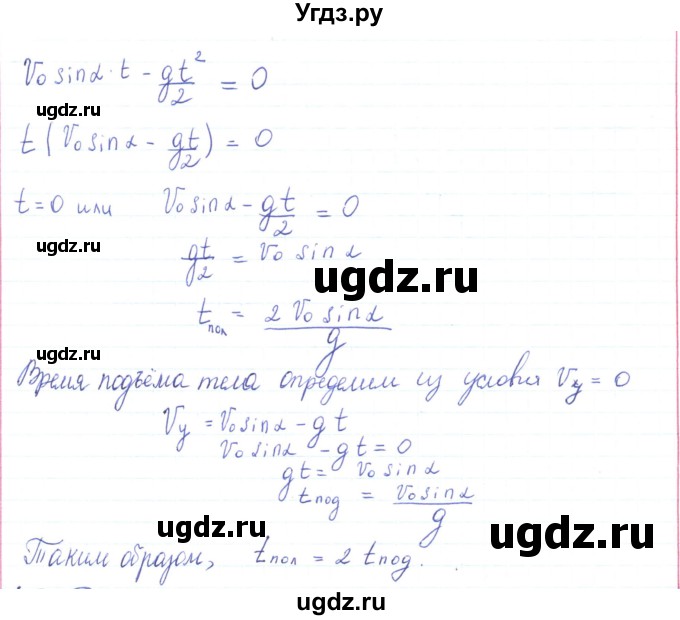 Угдз.ру
V₀ sinα · t − gt²/2 = 0
ugdz.ru
t (V₀ sinα − gt/2) = 0
t = 0 или V₀ sinα − gt/2 = 0
ugdz.ru
gt/2 = V₀ sinα
ugdz.ru
tпол = 2 V₀ sinα / g
ugdz.ru
Время подъёма тела определим из условия Vy = 0
Vy = V₀ sinα − gt
V₀ sinα − gt = 0
ugdz.ru
gt = V₀ sinα
tпод = V₀ sinα / g
ugdz.ru
ugdz.ru
Таким образом, tпол = 2 tпод.
ugdz.ru